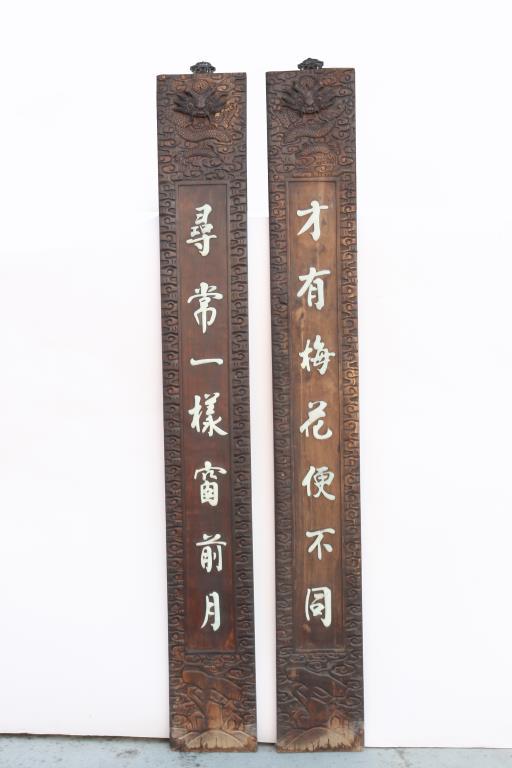 尋常一樣窗前月
才有梅花便不同